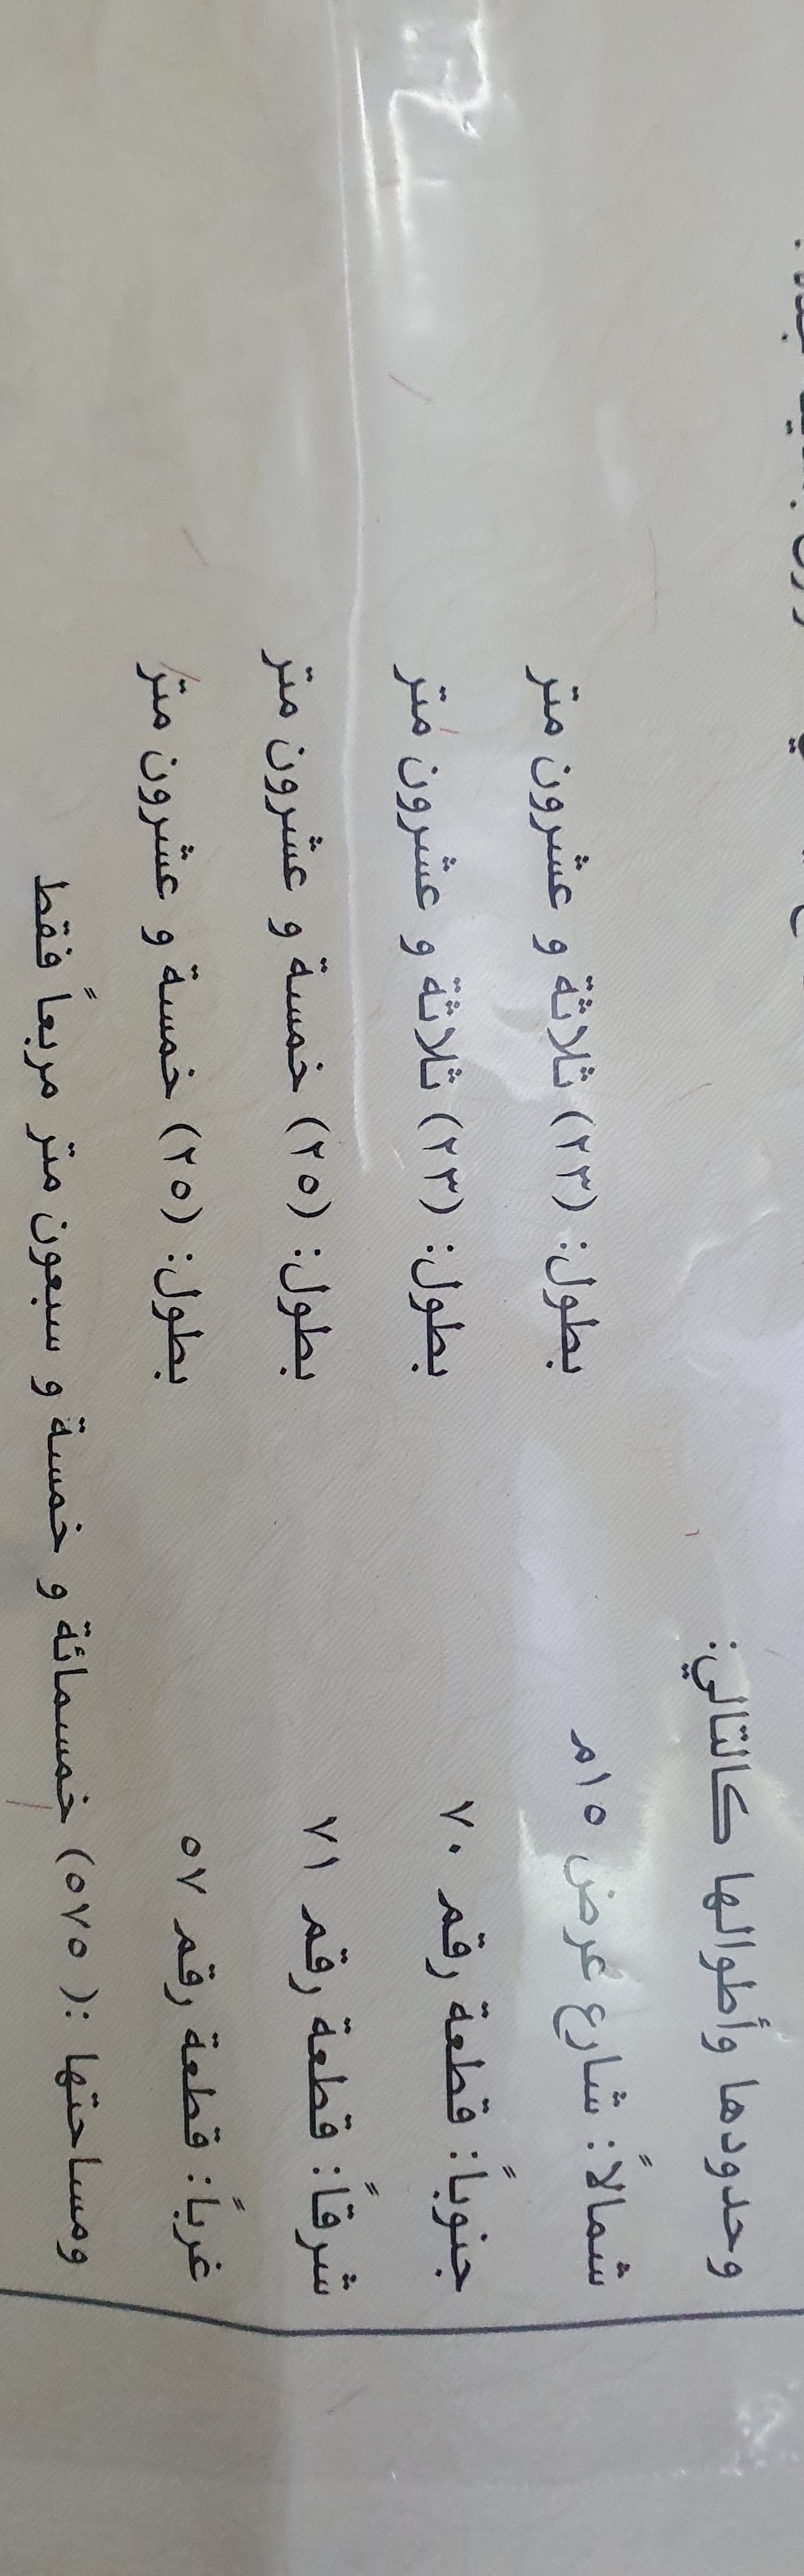 وحدودها وأطوالها كالتالي:
شمالاً: شارع عرض ١٥م بطول: (٢٣) ثلاثة و عشرون متر
جنوباً: قطعة رقم ٧٠ بطول: (٢٣) ثلاثة و عشرون متر
شرقاً: قطعة رقم ٧١ بطول: (٢٥) خمسة و عشرون متر
غرباً: قطعة رقم ٥٧ بطول: (٢٥) خمسة و عشرون متر
ومساحتها :( ٥٧٥) خمسمائة و خمسة و سبعون متر مربعاً فقط